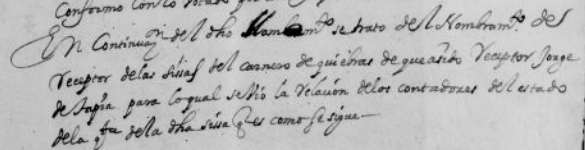 Conformo con lo votado
En Continuaçn del dho Nombramto se trato del Nombramto del
Receptor de las sissas del carnero de quiebras de que a sido Receptor Jorge
de tapia para lo qual se vio la relacion de los contadores del estado
de la qta de la dha sissa q es como se sigue